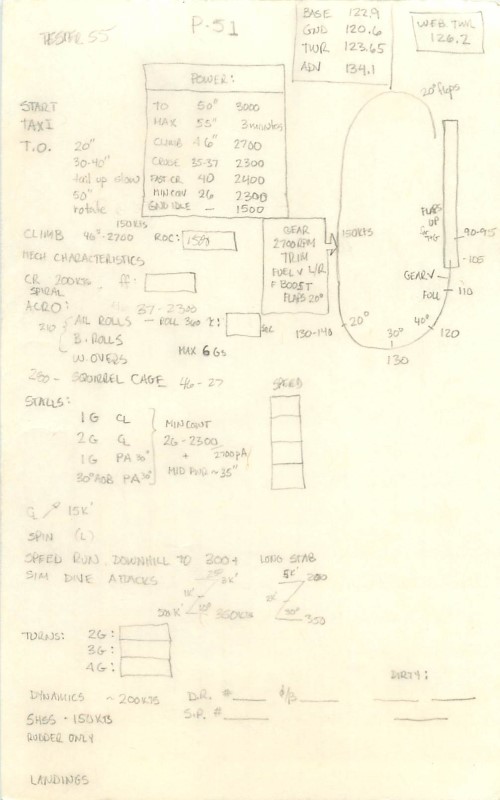 P-51
55
BASE 122.9
GND 120.6
TWR 123.65
ADV 134.1
WEB TWR
126.2
POWER:
TO 50" 3000
MAX 55" 3 minutes
CLIMB 46" 2700
CRUSE 35-37 2300
FAST CR 40 2400
MIN CONT 26 2300
GND IDLE — 1500
START
TAXI
T.O. 20"
30-40"
tail up slow
50"
rotate
150 KTS
CLIMB 46"-2700 ROC: 1500
MECH CHARACTERISTICS
CR 200 KTS ff:
SPIRAL
ACRO: 37-2300
210 AIL ROLLS — FULL 360 t: sec
B. ROLLS
W. OVERS MAX 6 Gs
250 - SQUIRREL CAGE 46-27
20° flaps
GEAR
2700 RPM
TRIM
FUEL V L/R
F BOOST
FLAPS 20°
150 KTS
FLAPS
UP
90-95
105
GEAR V
FULL 110
130-140
20°
30°
40°
120
130
STALLS: SPEED
1G CL
2G CL
1G PA 30°
30° AOB PA 30°
MIN COUNT
26-2300
+ 2700 PA
MID PWR ~35"
CL 15K'
SPIN (L)
SPEED RUN, DOWNHILL TO 300+ LONG STAB
SIM DIVE ATTACKS
5K' 200
30° 350
TURNS: 2G:
3G:
4G:
DIRTY:
DYNAMICS ~200 KTS D.R. #
SHSS - 150 KTS S.P. #
RUDDER ONLY
LANDINGS